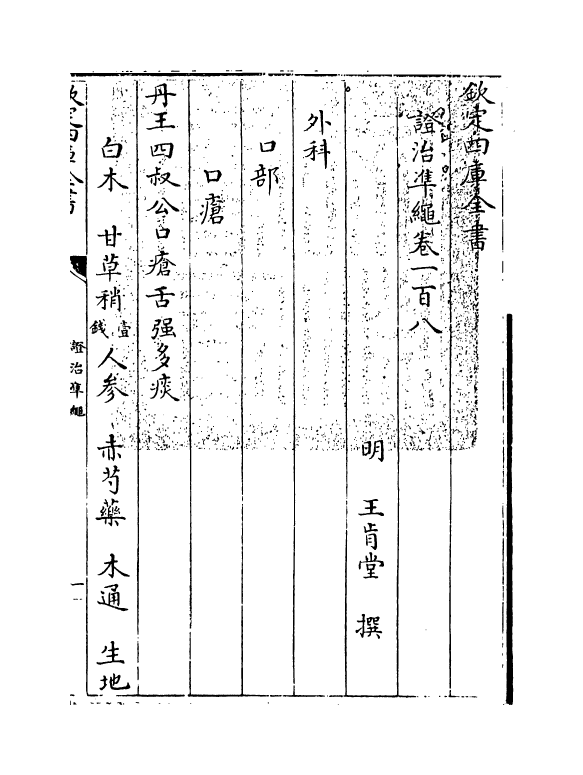 欽定四庫全書
證治準繩卷一百八
明 王肯堂 撰
外科
口部
口瘡
丹王四叔公口瘡舌强多痰
白木 甘草稍壹錢 人参 赤芍藥 木通 生地
欽定四庫全書
證治準繩
一